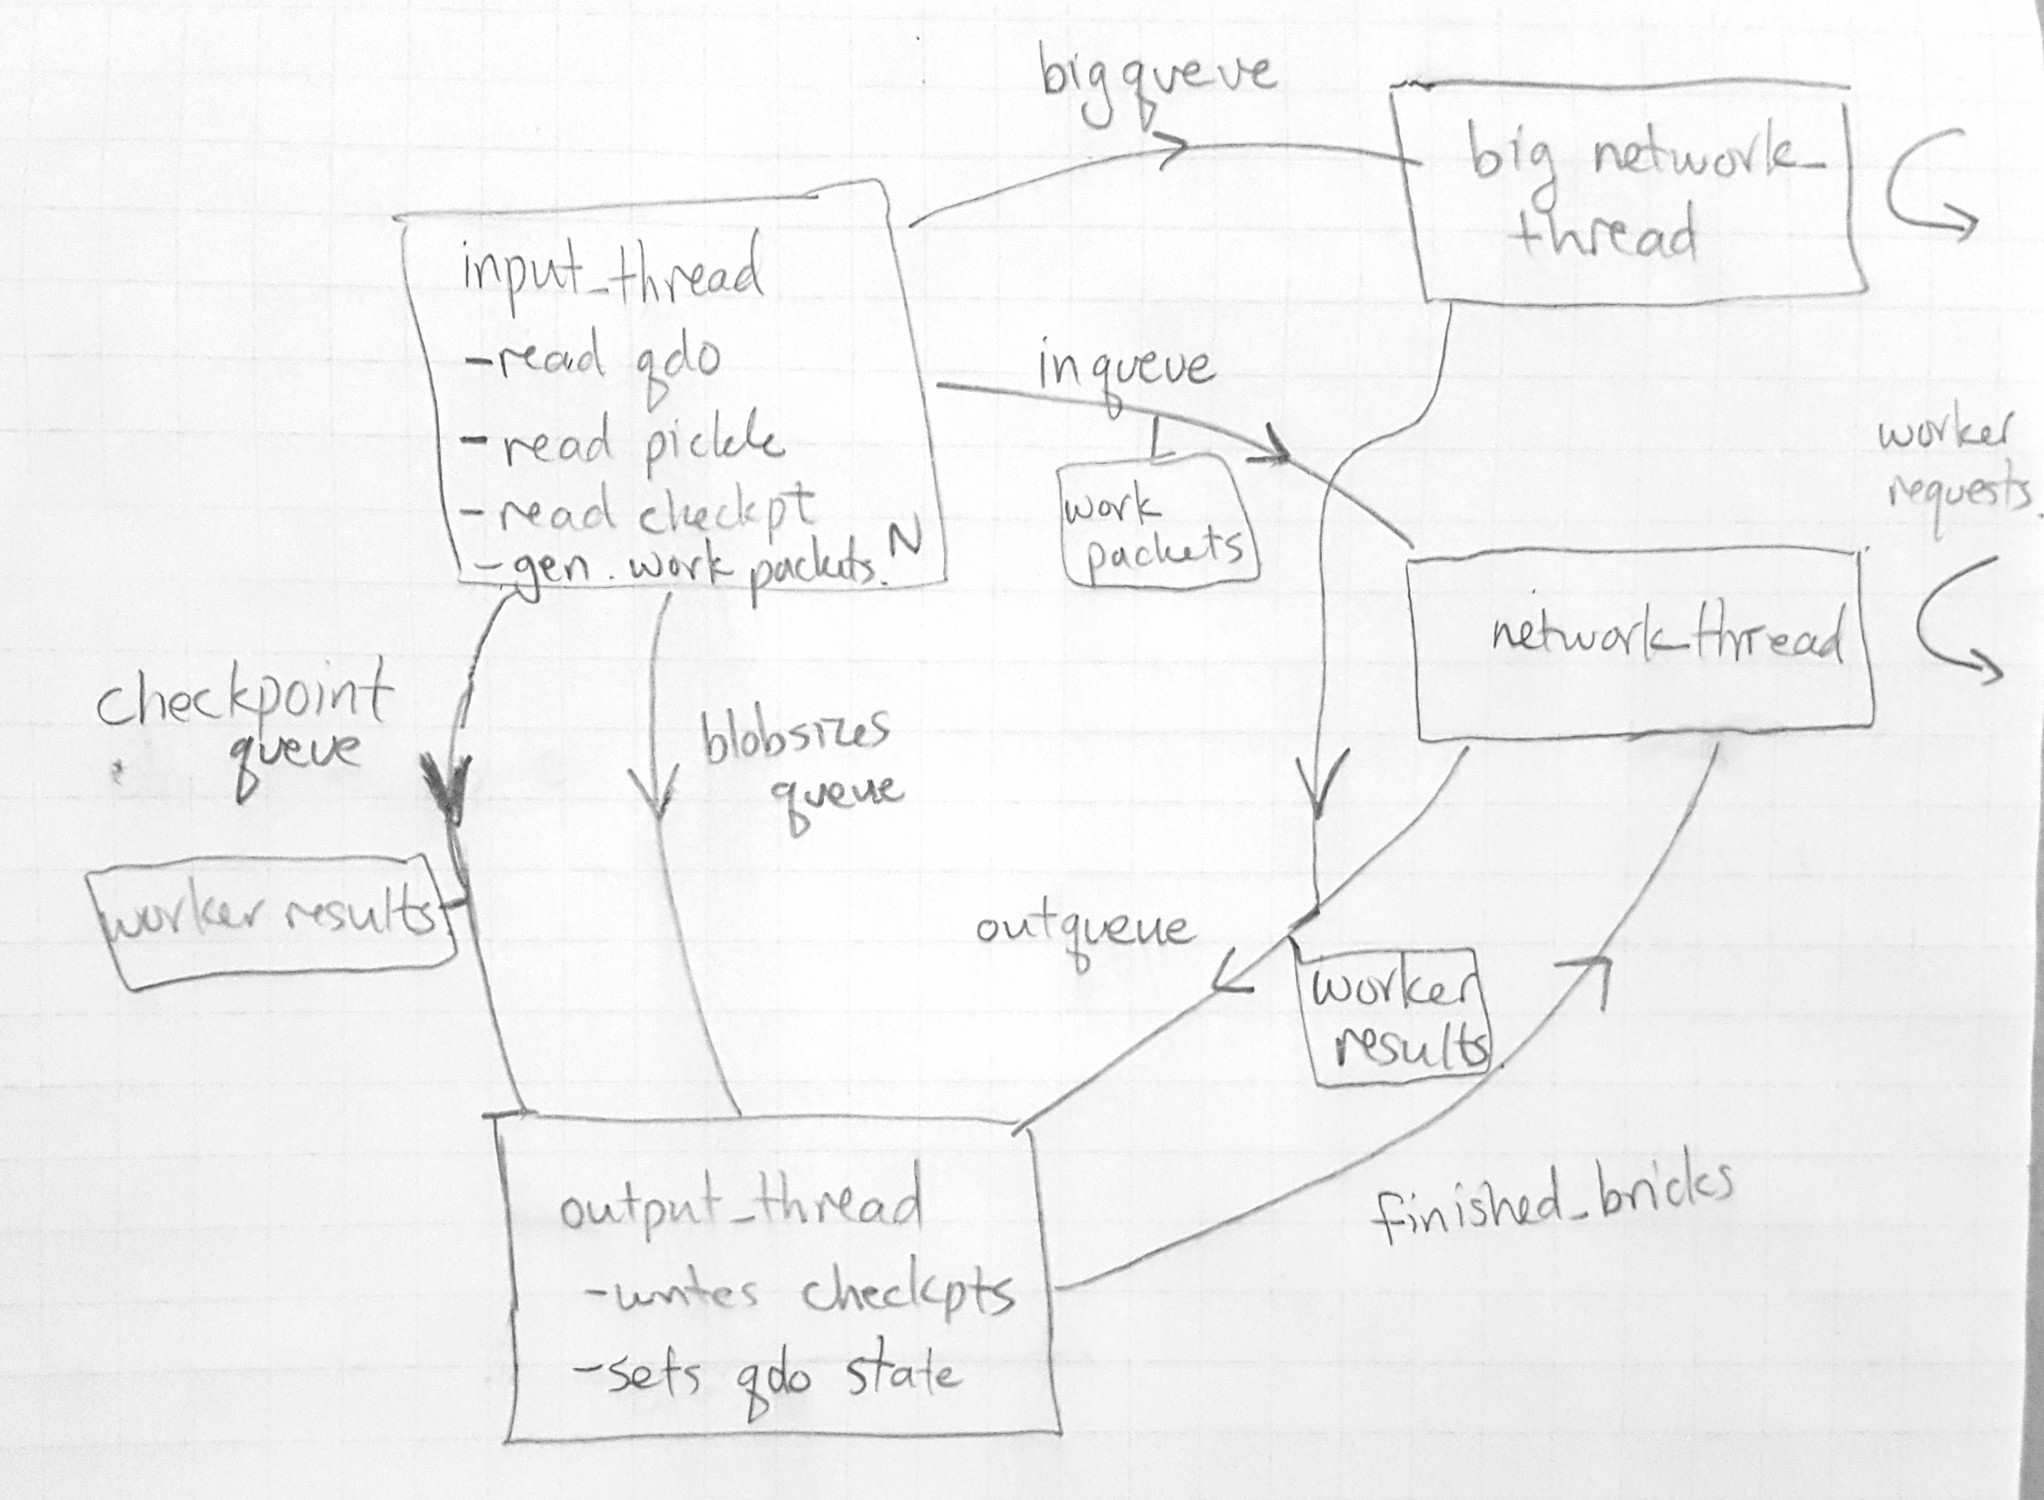 bigqueue
big network_
thread
input_thread
-read qdo
-read pickle
-read checkpt
-gen. work packets.
N
inqueue
work
packets
worker
requests.
network_thread
checkpoint
queue
blobsizes
queue
worker results
outqueue
worker
results
output_thread
-writes checkpts
-sets qdo state
finished_bricks